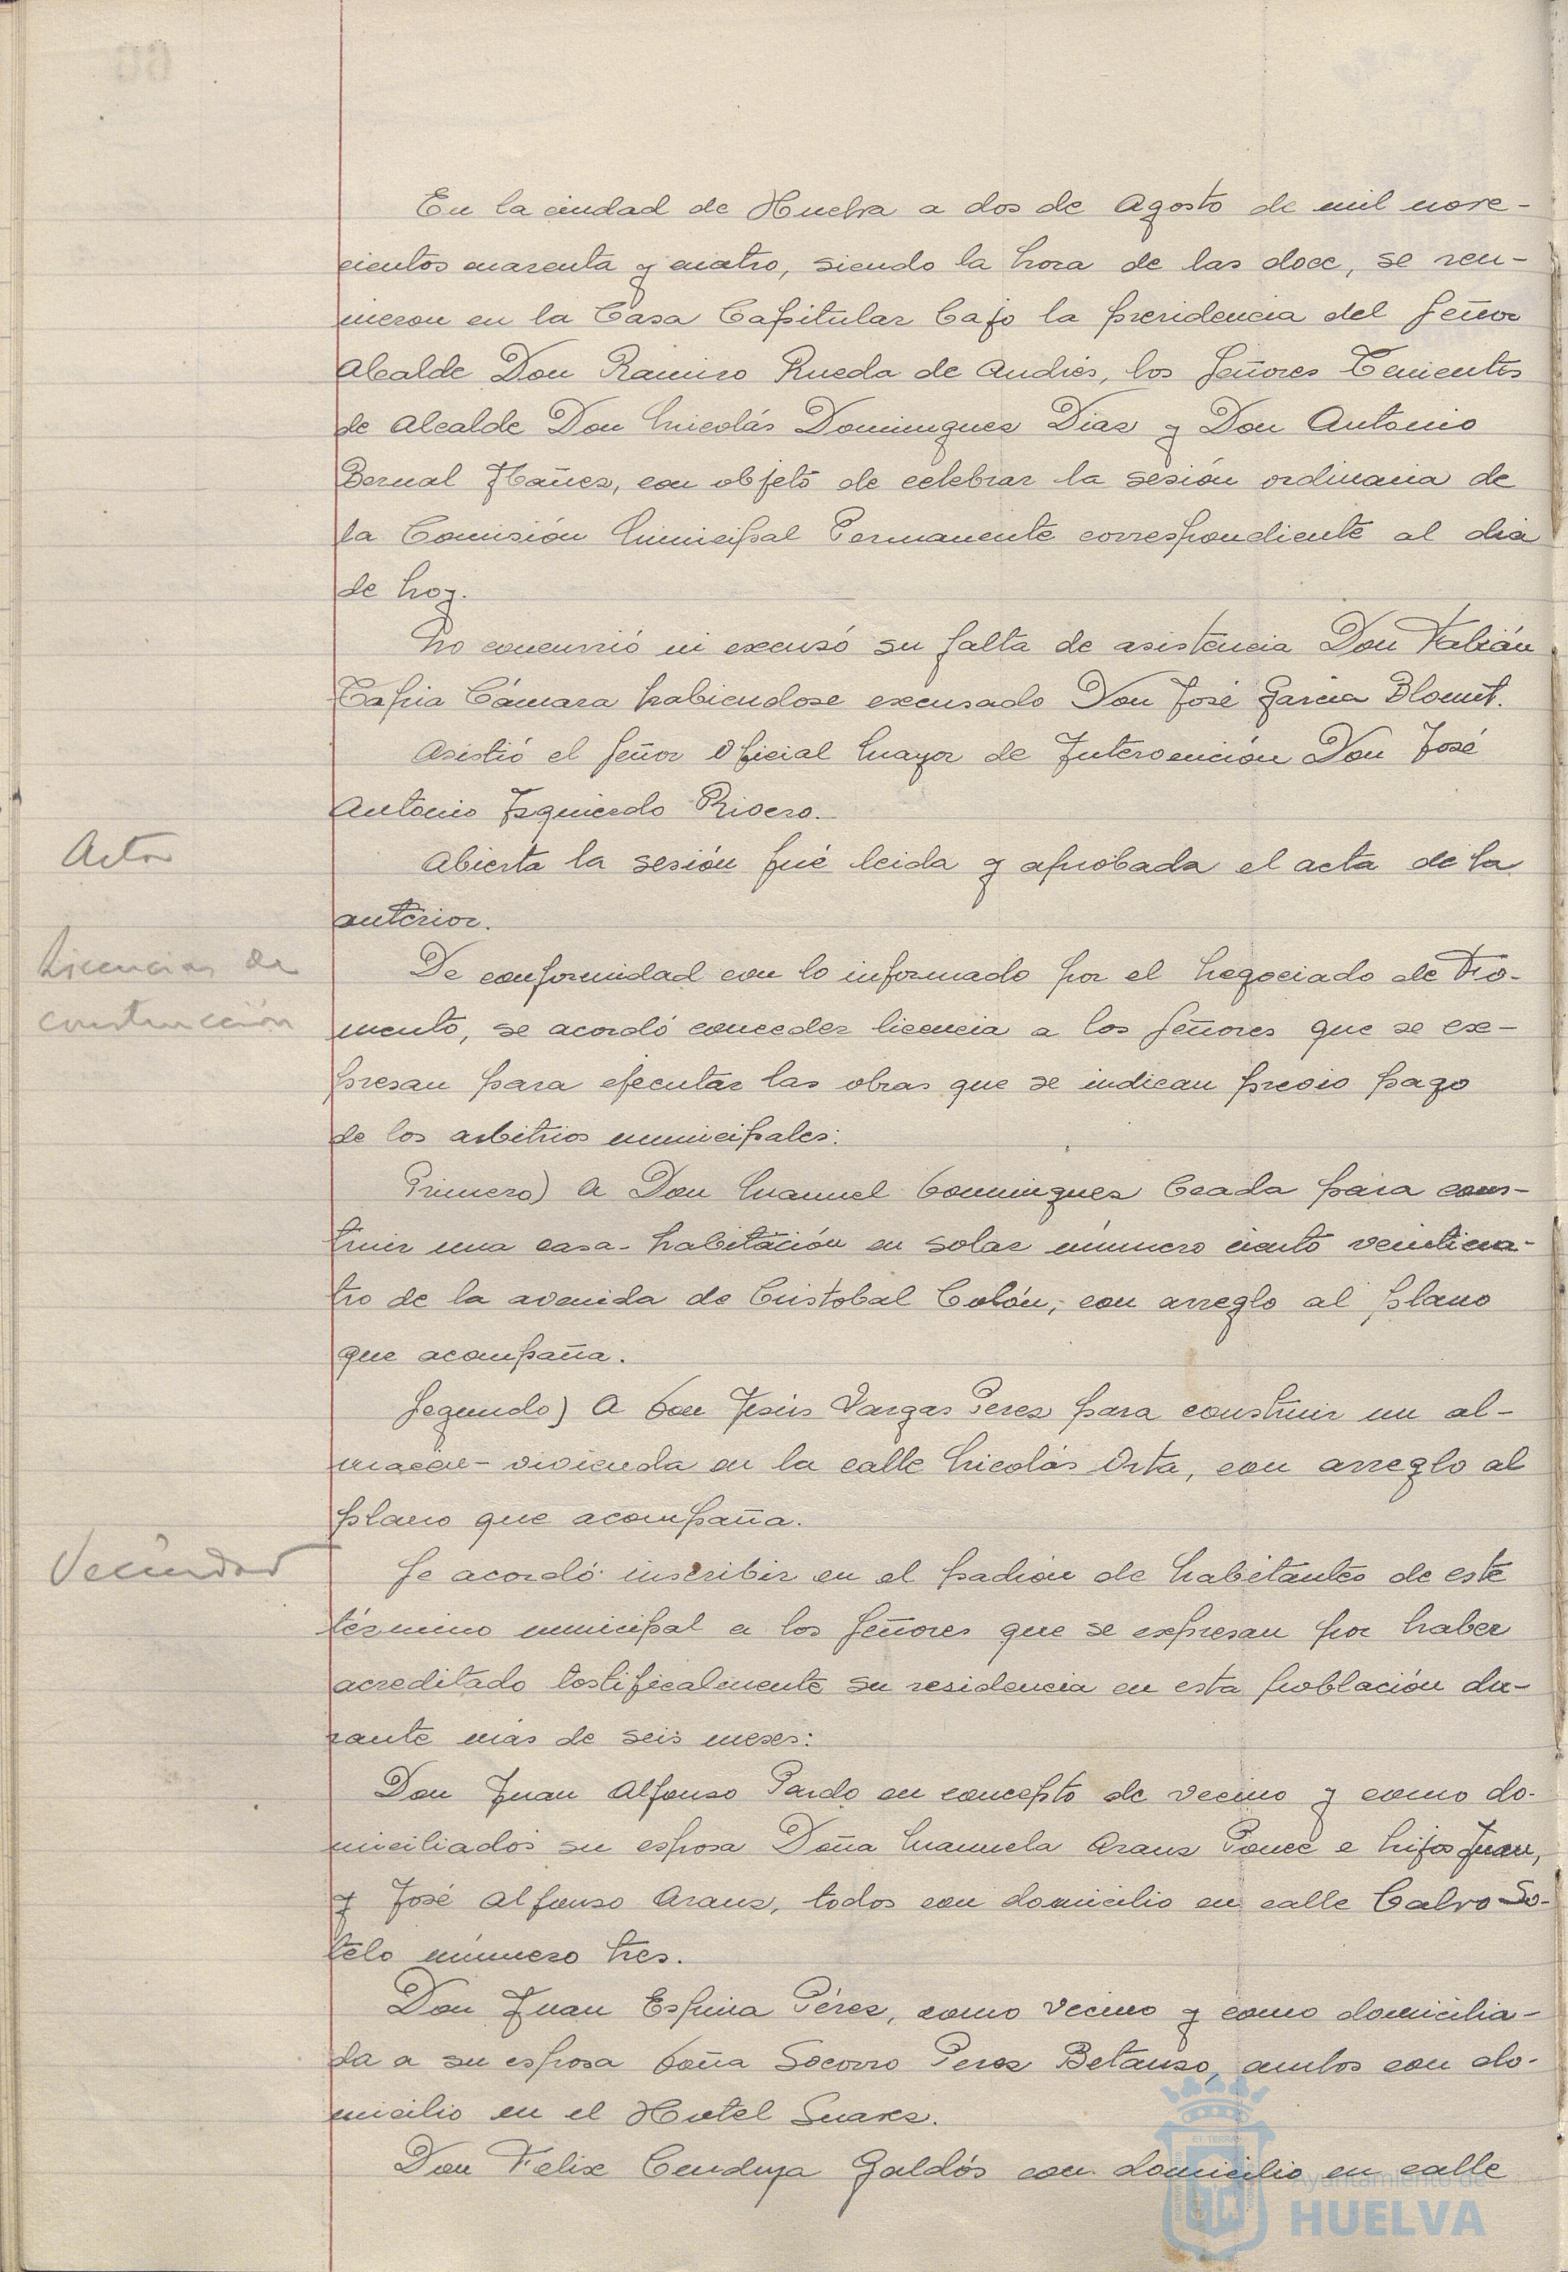 En la ciudad de Huelva a dos de Agosto de mil nove-
cientos cuarenta y cuatro, siendo la hora de las doce, se reu-
nieron en la Casa Capitular bajo la presidencia del Señor
Alcalde Don Ramiro Rueda de Andrés, los Señores Tenientes
de Alcalde Don Nicolás Dominguez Diaz y Don Antonio
Bernal Ibañez, con objeto de celebrar la sesión ordinaria de
la Comisión Municipal Permanente correspondiente al dia
de hoy.
No concurrió ni excusó su falta de asistencia Don Fabián
Tapia Cámara habiendose excusado Don José García
Asistió el Señor Oficial Mayor de Intervención Don José
Antonio Izquierdo Rivero.
Acta
Abierta la sesión fué leida y aprobada el acta de la
anterior.
Licencias de
construcción
De conformidad con lo informado por el Negociado de Fo-
mento, se acordó conceder licencia a los Señores que se ex-
presan para ejecutar las obras que se indican previo pago
de los arbitrios municipales:
Primero) A Don Manuel Dominguez Ceada para cons-
truir una casa-habitación en solar número ciento veinticua-
tro de la avenida de Cristobal Colón, con arreglo al plano
que acompaña.
Segundo) A Don Jesús Vargas Perez para construir un al-
macén-vivienda en la calle Nicolás Orta, con arreglo al
plano que acompaña.
Vecindad
Se acordó inscribir en el padrón de habitantes de este
término municipal a los Señores que se expresan por haber
acreditado testificalmente su residencia en esta población du-
rante más de seis meses:
Don Juan Alfonso Pardo en concepto de vecino y como do-
miciliados su esposa Doña Manuela Arauz Ponce e hijos Juan,
y José Alfonso Arauz, todos con domicilio en calle Calvo So-
telo número tres.
Don Juan Espina Pérez, como vecino y como domicilia-
da a su esposa Doña Socorro Perez Betanzo, ambos con do-
micilio en el Hotel Suarez.
Don Felix Cenduya Galdós con domicilio en calle
Ayuntamiento de
HUELVA